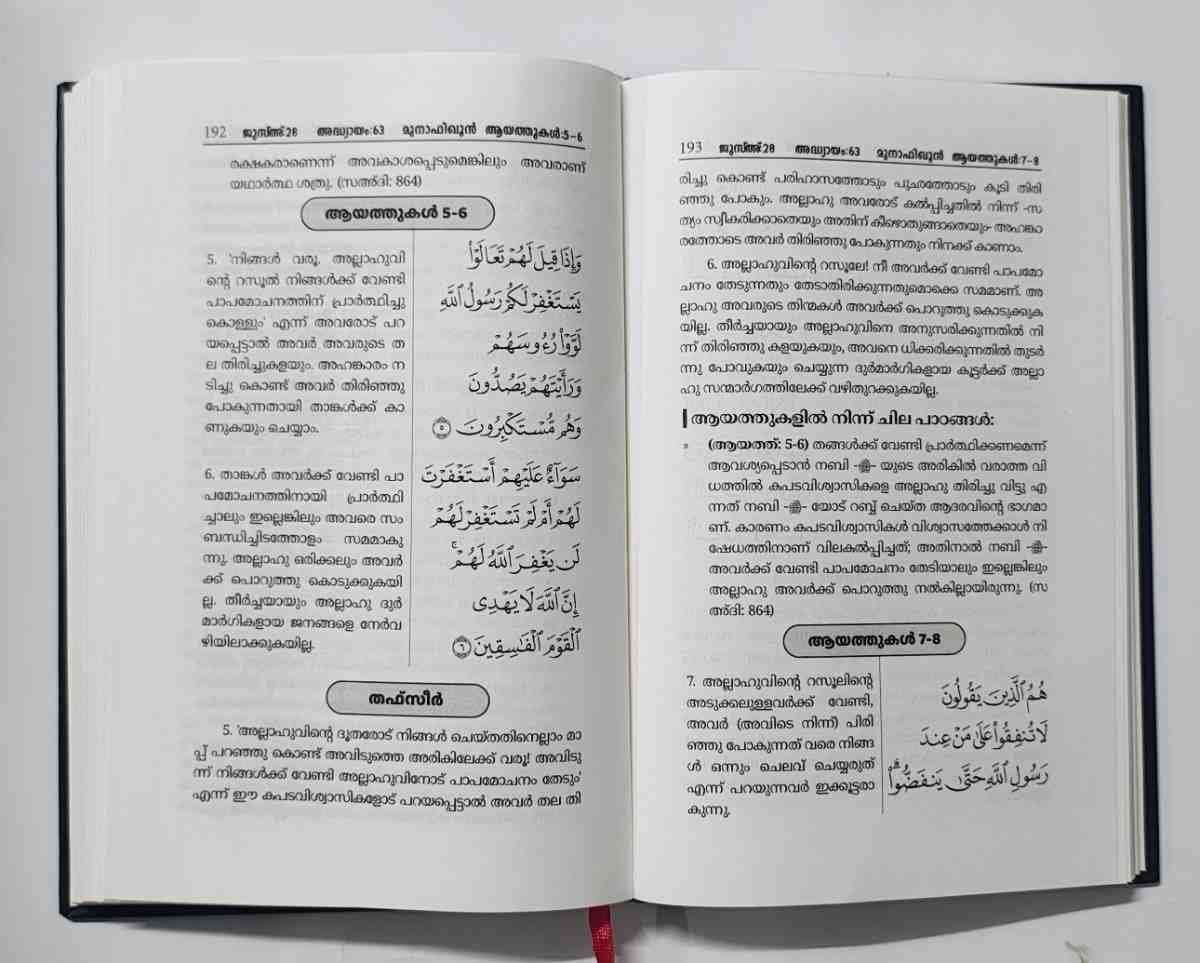 192 ജുസ്അ്:28 അദ്ധ്യായം:63 മുനാഫിഖൂൻ ആയത്തുകൾ:5-6
രക്ഷകരാണെന്ന് അവകാശപ്പെടുമെങ്കിലും അവരാണ്
യഥാർത്ഥ ശത്രു. (സഅ്ദി: 864)
ആയത്തുകൾ 5-6
5. 'നിങ്ങൾ വരൂ. അല്ലാഹുവി
ന്റെ റസൂൽ നിങ്ങൾക്ക് വേണ്ടി
പാപമോചനത്തിന് പ്രാർത്ഥിച്ചു
കൊള്ളും' എന്ന് അവരോട് പറ
യപ്പെട്ടാൽ അവർ അവരുടെ ത
ല തിരിച്ചുകളയും. അഹങ്കാരം ന
ടിച്ചു കൊണ്ട് അവർ തിരിഞ്ഞു
പോകുന്നതായി താങ്കൾക്ക് കാ
ണുകയും ചെയ്യാം.
وَإِذَا قِيلَ لَهُمْ تَعَالَوْا۟
يَسْتَغْفِرْ لَكُمْ رَسُولُ ٱللَّهِ
لَوَّوْا۟ رُءُوسَهُمْ
وَرَأَيْتَهُمْ يَصُدُّونَ
وَهُم مُّسْتَكْبِرُونَ ٥
6. താങ്കൾ അവർക്ക് വേണ്ടി പാ
പമോചനത്തിനായി പ്രാർത്ഥി
ച്ചാലും ഇല്ലെങ്കിലും അവരെ സം
ബന്ധിച്ചിടത്തോളം സമമാകു
ന്നു. അല്ലാഹു ഒരിക്കലും അവർ
ക്ക് പൊറുത്തു കൊടുക്കുകയി
ല്ല. തീർച്ചയായും അല്ലാഹു ദുർ
മാർഗികളായ ജനങ്ങളെ നേർവ
ഴിയിലാക്കുകയില്ല.
سَوَآءٌ عَلَيْهِمْ أَسْتَغْفَرْتَ
لَهُمْ أَمْ لَمْ تَسْتَغْفِرْ لَهُمْ
لَن يَغْفِرَ ٱللَّهُ لَهُمْ ۚ
إِنَّ ٱللَّهَ لَا يَهْدِى
ٱلْقَوْمَ ٱلْفَـٰسِقِينَ ٦
തഫ്സീർ
5. 'അല്ലാഹുവിന്റെ ദൂതരോട് നിങ്ങൾ ചെയ്തതിനെല്ലാം മാ
പ്പ് പറഞ്ഞു കൊണ്ട് അവിടുത്തെ അരികിലേക്ക് വരൂ! അവിടു
ന്ന് നിങ്ങൾക്ക് വേണ്ടി അല്ലാഹുവിനോട് പാപമോചനം തേടും'
എന്ന് ഈ കപടവിശ്വാസികളോട് പറയപ്പെട്ടാൽ അവർ തല തി
193 ജുസ്അ്:28 അദ്ധ്യായം:63 മുനാഫിഖൂൻ ആയത്തുകൾ:7-8
രിച്ചു കൊണ്ട് പരിഹാസത്തോടും പുഛത്തോടും കൂടി തിരി
ഞ്ഞു പോകും. അല്ലാഹു അവരോട് കൽപ്പിച്ചതിൽ നിന്ന് -സ
ത്യം സ്വീകരിക്കാതെയും അതിന് കീഴൊതുങ്ങാതെയും- അഹങ്കാ
രത്തോടെ അവർ തിരിഞ്ഞു പോകുന്നതും നിനക്ക് കാണാം.
6. അല്ലാഹുവിന്റെ റസൂലേ! നീ അവർക്ക് വേണ്ടി പാപമോ
ചനം തേടുന്നതും തേടാതിരിക്കുന്നതുമൊക്കെ സമമാണ്. അ
ല്ലാഹു അവരുടെ തിന്മകൾ അവർക്ക് പൊറുത്തു കൊടുക്കുക
യില്ല. തീർച്ചയായും അല്ലാഹുവിനെ അനുസരിക്കുന്നതിൽ നി
ന്ന് തിരിഞ്ഞു കളയുകയും, അവനെ ധിക്കരിക്കുന്നതിൽ തുടർ
ന്നു പോവുകയും ചെയ്യുന്ന ദുർമാർഗികളായ കൂട്ടർക്ക് അല്ലാ
ഹു സന്മാർഗത്തിലേക്ക് വഴിതുറക്കുകയില്ല.
ആയത്തുകളിൽ നിന്ന് ചില പാഠങ്ങൾ:
(ആയത്ത്: 5-6) തങ്ങൾക്ക് വേണ്ടി പ്രാർത്ഥിക്കണമെന്ന്
ആവശ്യപ്പെടാൻ നബി -ﷺ- യുടെ അരികിൽ വരാത്ത വി
ധത്തിൽ കപടവിശ്വാസികളെ അല്ലാഹു തിരിച്ചു വിട്ടു എ
ന്നത് നബി -ﷺ- യോട് റബ്ബ് ചെയ്ത ആദരവിന്റെ ഭാഗമാ
ണ്. കാരണം കപടവിശ്വാസികൾ വിശ്വാസത്തേക്കാൾ നി
ഷേധത്തിനാണ് വിലകൽപ്പിച്ചത്; അതിനാൽ നബി -ﷺ-
അവർക്ക് വേണ്ടി പാപമോചനം തേടിയാലും ഇല്ലെങ്കിലും
അല്ലാഹു അവർക്ക് പൊറുത്തു നൽകില്ലായിരുന്നു. (സ
അ്ദി: 864)
ആയത്തുകൾ 7-8
7. അല്ലാഹുവിന്റെ റസൂലിന്റെ
അടുക്കലുള്ളവർക്ക് വേണ്ടി,
അവർ (അവിടെ നിന്ന്) പിരി
ഞ്ഞു പോകുന്നത് വരെ നിങ്ങ
ൾ ഒന്നും ചെലവ് ചെയ്യരുത്
എന്ന് പറയുന്നവർ ഇക്കൂട്ടരാ
കുന്നു.
هُمُ ٱلَّذِينَ يَقُولُونَ
لَا تُنفِقُوا۟ عَلَىٰ مَنْ عِندَ
رَسُولِ ٱللَّهِ حَتَّىٰ يَنفَضُّوا۟ ۗ